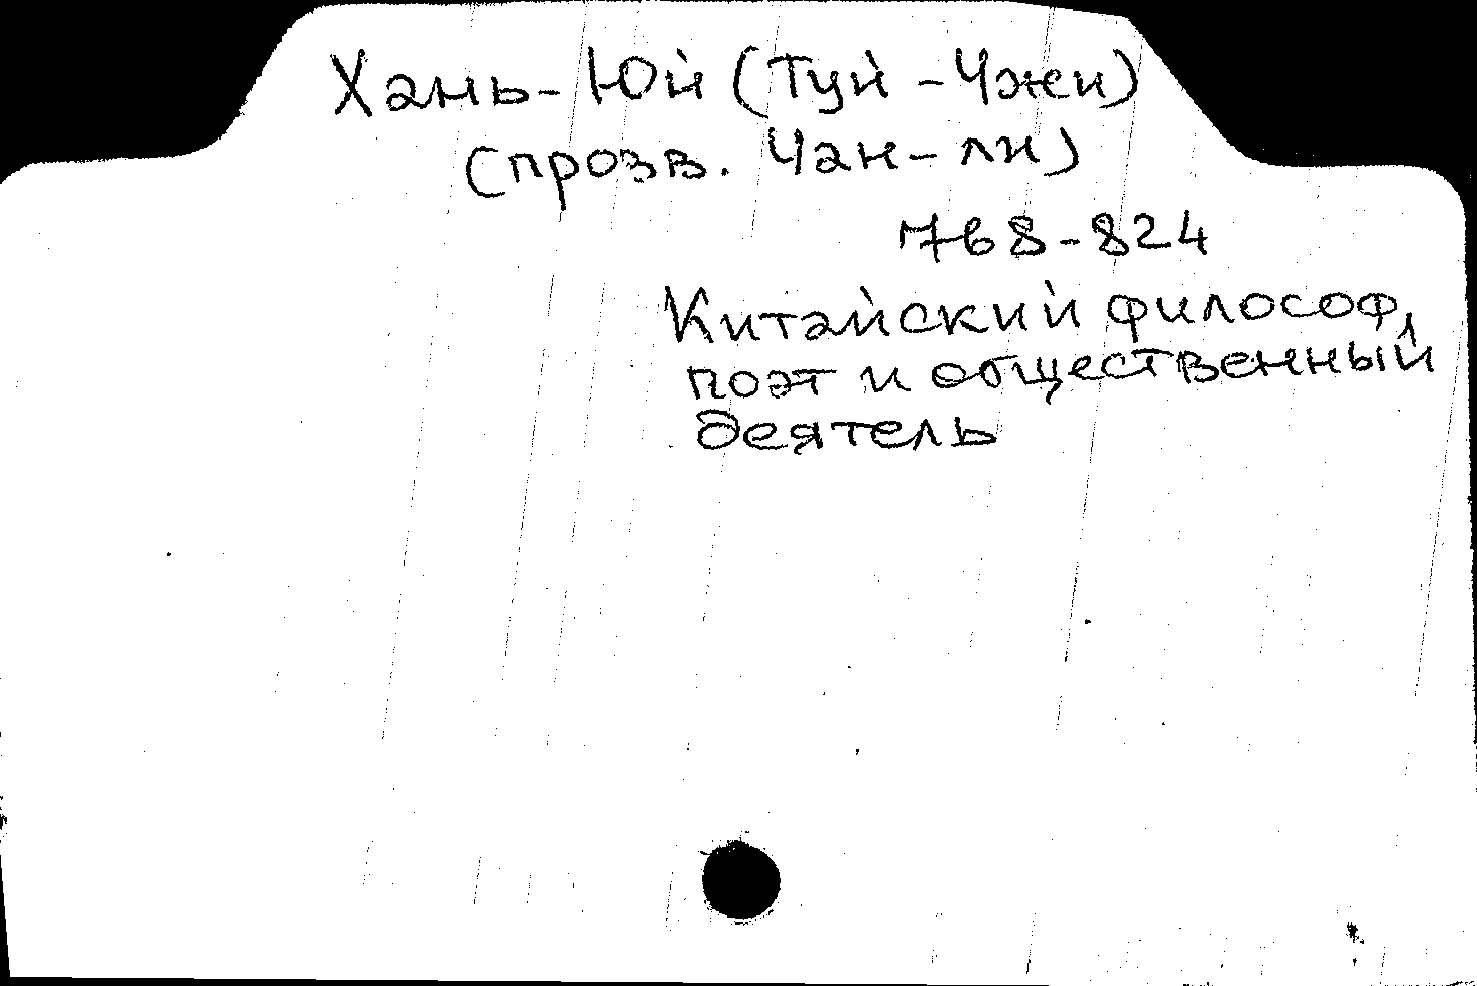 Хань-Юй (Туй-Чжи)
(прозв. Чан-ли)
768-824
Китайский философ,
поэт и общественный
деятель